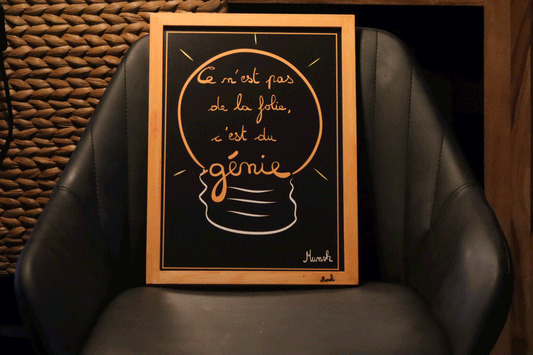 Ce n'est pas
de la folie,
c'est du
génie
Munsk